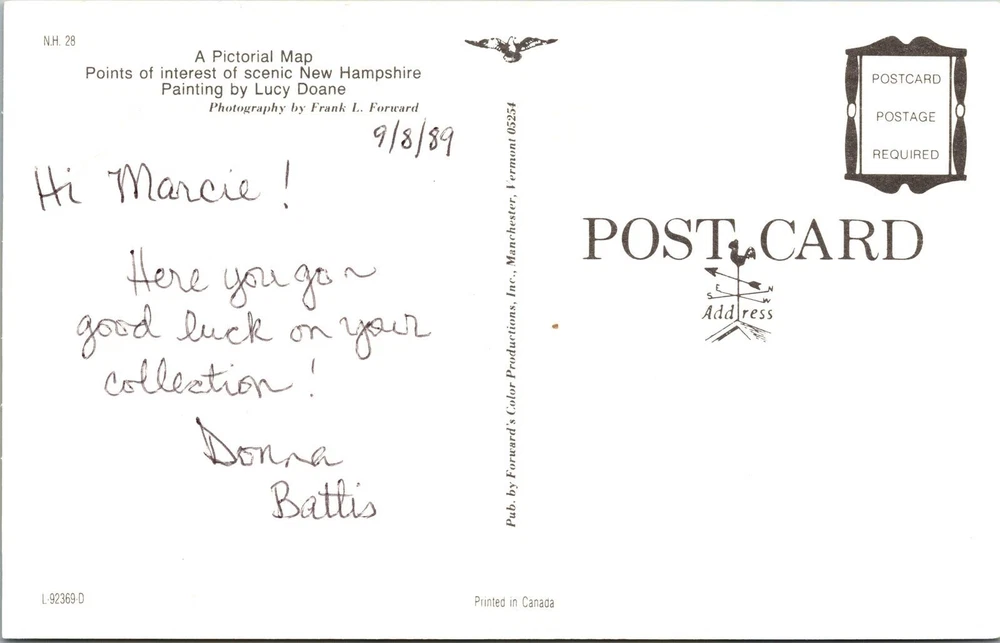 N.H. 28
A Pictorial Map
Points of interest of scenic New Hampshire
Painting by Lucy Doane
Photography by Frank L. Forward
9/8/89
Hi Marcie!
Here you go ~
good luck on your
collection!
Donna
Battis
L-92369-D
Pub. by Forward's Color Productions, Inc., Manchester, Vermont 05254
Printed in Canada
POSTCARD
POSTAGE
REQUIRED
POST CARD
E N
S W
Address